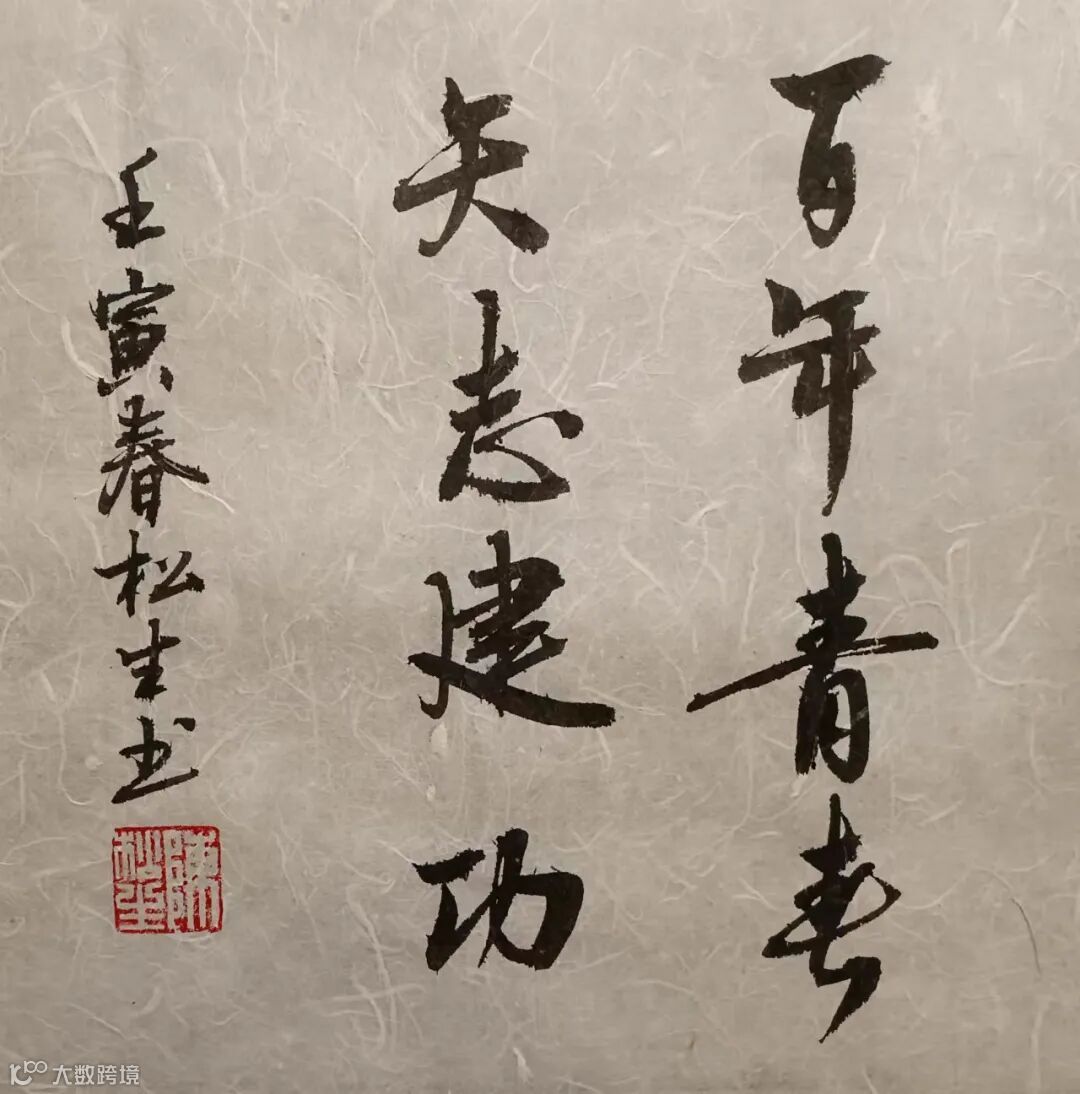 百年青春
矢志建功
壬寅春松生书
陳松生
大数跨境